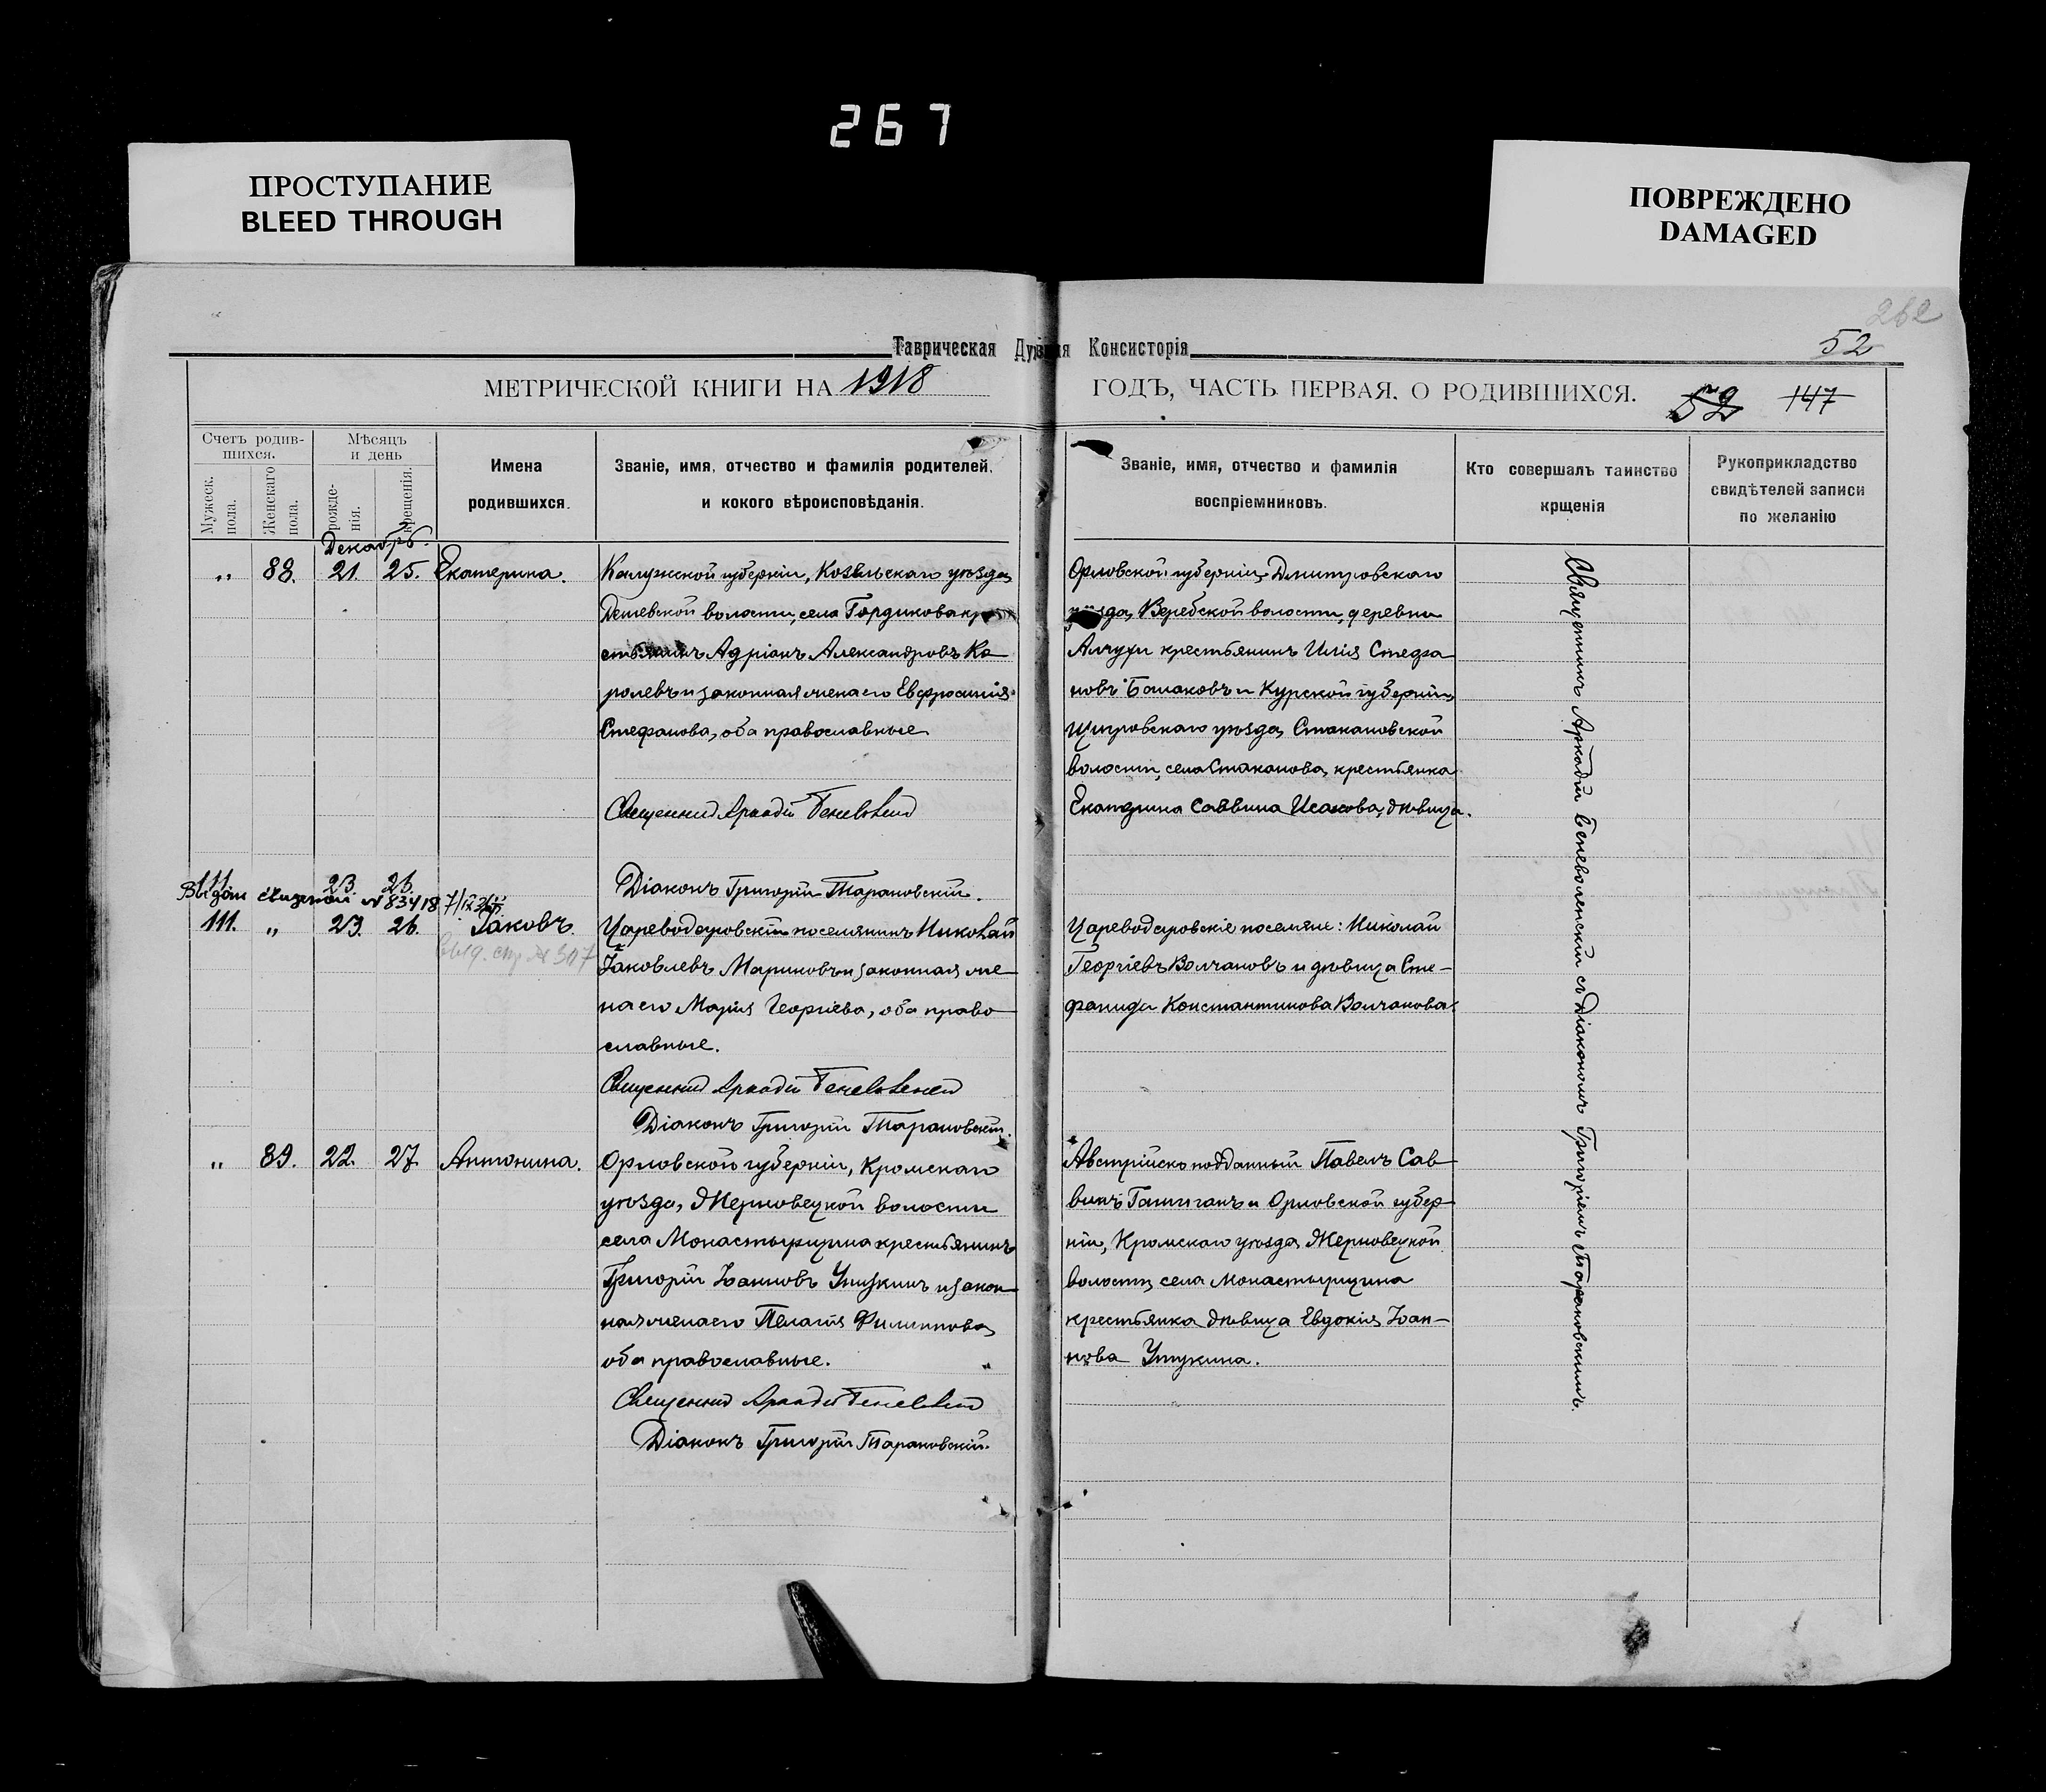 267
ПРОСТУПАНИЕ
BLEED THROUGH
ПОВРЕЖДЕНО
DAMAGED
262
52
Таврическая Духовная Консисторія
МЕТРИЧЕСКОЙ КНИГИ НА 1918
ГОДЪ, ЧАСТЬ ПЕРВАЯ, О РОДИВШИХСЯ.
52 147
Счетъ родив-
шихся.
Мужеск. пола.
Женскаго пола.
Мѣсяцъ
и день
рожде-
нія.
крещенія.
Имена
родившихся.
Званіе, имя, отчество и фамилія родителей,
и кокого вѣроисповѣданія.
Званіе, имя, отчество и фамилія
воспріемниковъ.
Кто совершалъ таинство
крщенія
Рукоприкладство
свидѣтелей записи
по желанію
Декабрь.
„ 88. 21. 25. Екатерина.
Калужской губерніи, Козельскаго уѣзда,
волости, села Гордикова кре
стьянинъ Адріанъ Александровъ Ко
ролевъ и законная жена его Евфросинія
Стефанова, оба православные
Священникъ Аркадій Беневоленскій
Діаконъ Григорій Тарановскій.
Орловской губерніи, Дмитровскаго
уѣзда, Веребской волости, деревни
крестьянинъ Илія Стефа
новъ Башаковъ и Курской губерніи,
Щигровскаго уѣзда, Стакановской
волости, села Стаканова, крестьянка
Екатерина Саввина Исакова, дѣвица.
Священникъ Аркадій Беневоленскій съ Діакономъ Григоріемъ Тарановскимъ.
111. 23. 26.
№ 83418
111. „ 23. 26. Іаковъ.
Цареводаровскій поселянинъ Николай
Іаковлевъ Мариновъ и законная же
на его Марія Георгіева, оба право
славные.
Священникъ Аркадій Беневоленскій
Діаконъ Григорій Тарановскій.
Цареводаровскіе поселяне: Николай
Георгіевъ Волчановъ и дѣвица Сте-
фанида Константинова Волчанова.
„ 89. 22. 27. Антонина.
Орловской губерніи, Кромскаго
уѣзда, Жерновецкой волости
села Монастырщина крестьянинъ
Григорій Іоанновъ Упужкинъ и закон
ная жена его Пелагія Филиппова,
оба православные.
Священникъ Аркадій Беневоленскій
Діаконъ Григорій Тарановскій.
Австрійско подданный Павелъ Сав
винъ и Орловской губер
ніи, Кромскаго уѣзда, Жерновецкой
волости, села Монастырщина
крестьянка дѣвица Евдокія Іоан-
нова